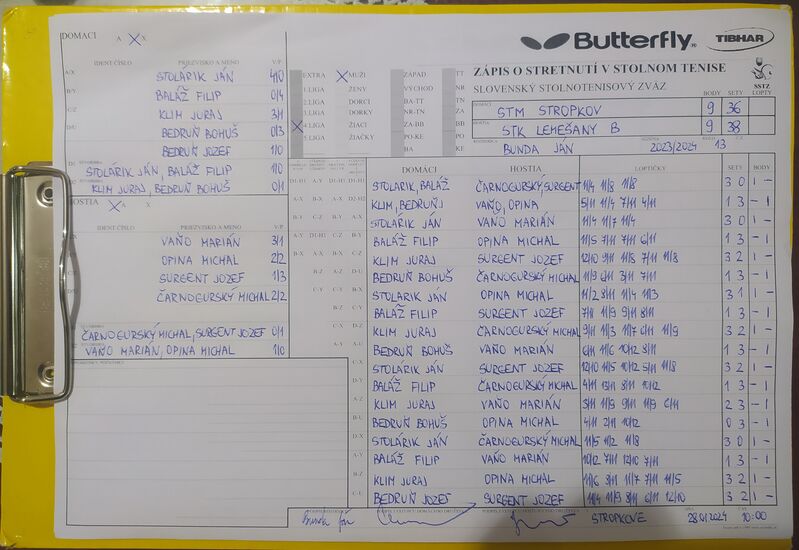 DOMÁCI A X
IDENT.ČÍSLO PRIEZVISKO A MENO V/P
A/X STOLÁRIK JÁN 4/0
B/Y BALÁŽ FILIP 0/4
C/Z KLIM JURAJ 3/1
D/U BEDRUŇ BOHUŠ 0/3
BEDRUŇ JOZEF 1/0
STOLÁRIK JÁN, BALÁŽ FILIP 1/0
KLIM JURAJ, BEDRUŇ BOHUŠ 0/1
HOSTIA A X
IDENT.ČÍSLO PRIEZVISKO A MENO V/P
VAŇO MARIÁN 3/1
OPINA MICHAL 2/2
SURGENT JOZEF 1/3
ČARNOGURSKÝ MICHAL 2/2
ČARNOGURSKÝ MICHAL, SURGENT JOZEF 0/1
VAŇO MARIÁN, OPINA MICHAL 1/0
Butterfly
TIBHAR
EXTRA MUŽI ZÁPAD TT
1.LIGA ŽENY VÝCHOD NR
2.LIGA DORCI BA-TT TN
3.LIGA DORKY NR-TN ZA
4.LIGA ŽIACI ZA-BB BB
5.LIGA ŽIAČKY PO-KE PO
BA KE
ZÁPIS O STRETNUTÍ V STOLNOM TENISE
SLOVENSKÝ STOLNOTENISOVÝ ZVÄZ
SSTZ
BODY SETY LOPTY
DOMÁCI STM STROPKOV 9 36
HOSTIA STK LEMEŠANY B 9 38
BUNDA JÁN 2023/2024 13
DOMÁCI HOSTIA LOPTIČKY SETY BODY
STOLARIK, BALÁŽ ČARNOGURSKÝ, SURGENT 11/4 11/8 11/8 3 0 1 -
KLIM, BEDRUŇ VAŇO, OPINA 5/11 11/4 7/11 4/11 1 3 - 1
STOLÁRIK JÁN VAŇO MARIÁN 11/4 11/7 11/4 3 0 1 -
BALÁŽ FILIP OPINA MICHAL 11/5 7/11 7/11 6/11 1 3 - 1
KLIM JURAJ SURGENT JOZEF 12/10 9/11 11/8 7/11 11/8 3 2 1 -
BEDRUŇ BOHUŠ ČARNOGURSKÝ MICHAL 11/9 6/11 3/11 7/11 1 3 - 1
STOLARIK JÁN OPINA MICHAL 11/2 8/11 11/4 11/3 3 1 1 -
BALÁŽ FILIP SURGENT JOZEF 7/11 11/9 7/11 8/11 1 3 - 1
KLIM JURAJ ČARNOGURSKÝ MICHAL 9/11 11/3 11/7 6/11 11/9 3 2 1 -
BEDRUŇ BOHUŠ VAŇO MARIÁN 6/11 11/6 10/12 8/11 1 3 - 1
STOLÁRIK JÁN SURGENT JOZEF 12/10 11/5 10/12 5/11 11/8 3 2 1 -
BALÁŽ FILIP ČARNOGURSKÝ MICHAL 4/11 13/11 8/11 10/12 1 3 - 1
KLIM JURAJ VAŇO MARIÁN 5/11 11/9 9/11 11/9 6/11 2 3 - 1
BEDRUŇ BOHUŠ OPINA MICHAL 4/11 2/11 10/12 0 3 - 1
STOLÁRIK JÁN ČARNOGURSKÝ MICHAL 11/5 11/2 11/8 3 0 1 -
BALÁŽ FILIP VAŇO MARIÁN 10/12 7/11 12/10 7/11 1 3 - 1
KLIM JURAJ OPINA MICHAL 11/6 3/11 11/7 7/11 11/5 3 2 1 -
BEDRUŇ JOZEF SURGENT JOZEF 11/4 11/9 8/11 6/11 12/10 3 2 1 -
Bunda Ján STROPKOVE 28.01.2024 10:00